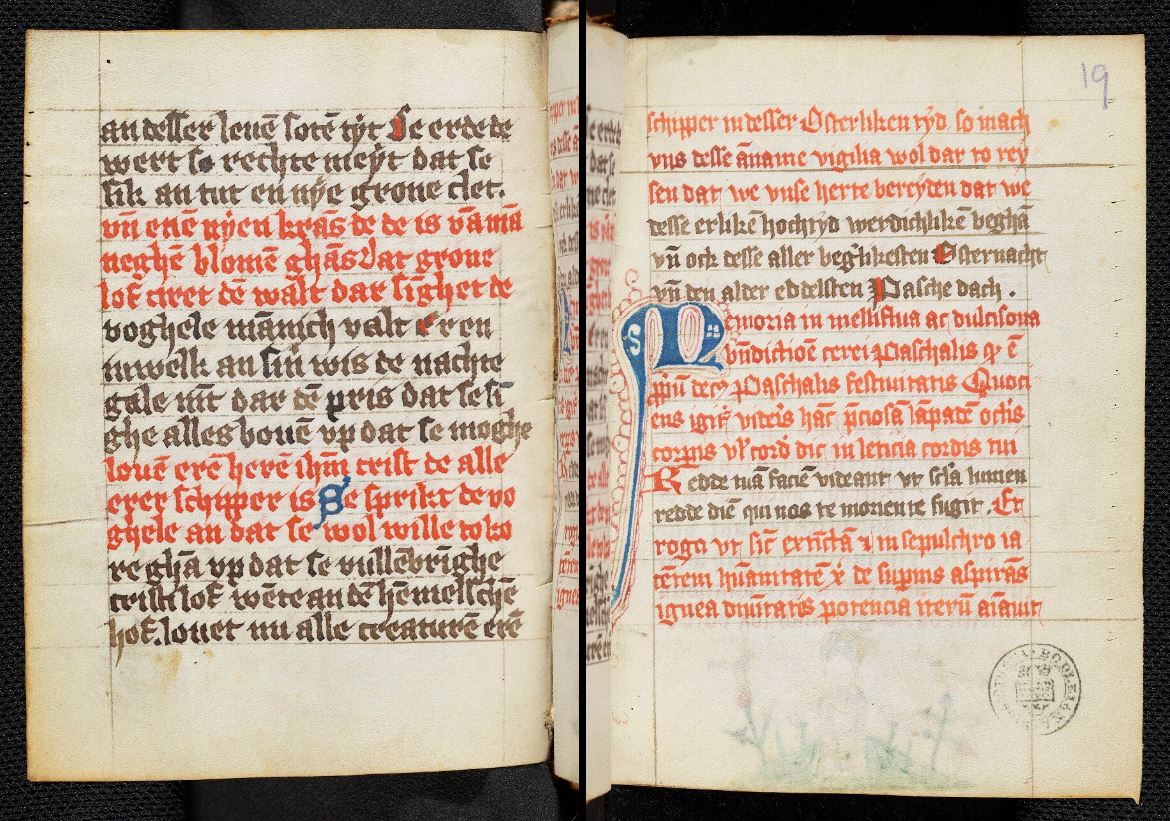 an desser leuē sotē tyt Se erde de
wert so rechte meyt dat se
sik an tut en nỹe grone clet.
vn̄ enē nyen krās de de is vā mā
neghē blomē ghās dat grone
lof ciret dē walt dar sighet de
voghele mānich valt Er en
in welk an sin wis de nachte
gale nūt dar dē pris dat se si
ghe alles bouē vp dat se moghe
louē erē herē ihm̄ crist de alle
erer schipper is Se sprikt de vo
ghele an dat se wol wille to ko
re ghā vp dat se vullēbrīghe
cristi lof wēte an dē hēmelschē
hof. louet nu alle creaturē erē
19
schipper in desser Osterliken tyd so mach
vns desse āname vigilia wol dar to rey
sen dat we vnse herte bereyden dat we
desse erlikē hochtyd werdichlikē beghā
vn̄ ock desse aller beg'likesten Osternacht
vn̄ den alder eddelsten Pasche dach.
Memoria in melliflua ac dulcisona
bn̄dictiōe cerei Paschalis qr ē
Paschalis festiuitatis Quoci
ens igit' videris hāc p̄ciosā lāpadē oclis
corpris vl' cord' dic in leticia cordis tui
Redde tuā faciē videant vt scl'a lumen
redde diē qui nos te moriente fugit. Et
roga vt sic' extīcta i in sepulchro ia
cētem hūanitatē x̄ de supnis aspirās
ignea diuītatis potencia iterū aīauit